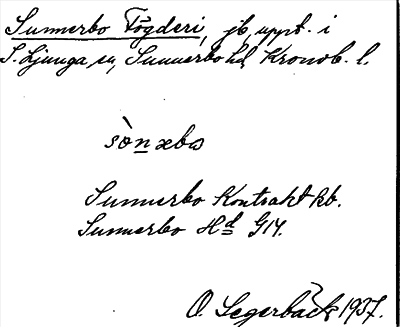 Sunnerbo Fögderi, jb, uppt. i
S. Ljunga sn, Sunnerbo hd, Kronob. l.
sònæbo
Sunnerbo Kontrakt kb.
Sunnerbo Hd G14.
O. Segerbäck 1937.